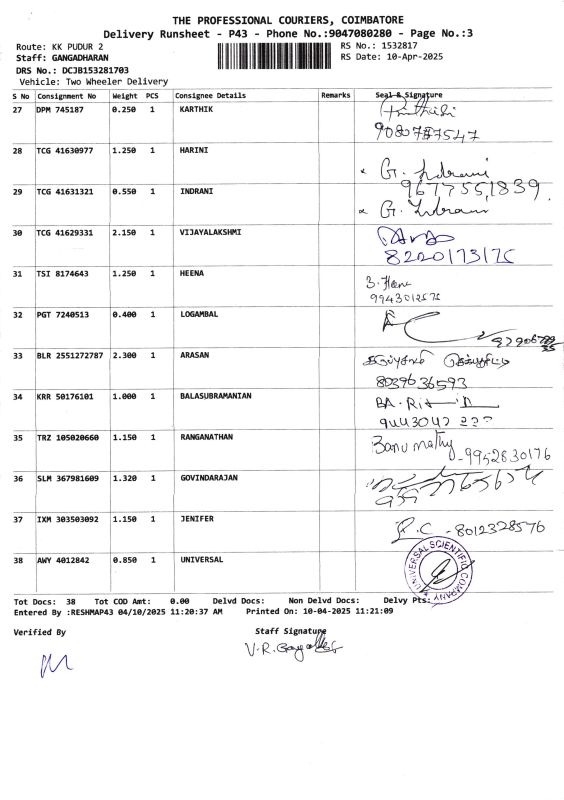 THE PROFESSIONAL COURIERS, COIMBATORE
Delivery Runsheet - P43 - Phone No.:9047080280 - Page No.:3
Route: KK PUDUR 2
RS No.: 1532817
Staff: GANGADHARAN
RS Date: 10-Apr-2025
DRS No.: DCJB153281703
Vehicle: Two Wheeler Delivery
S No Consignment No Weight PCS Consignee Details Remarks Seal & Signature
27 DPM 745187 0.250 1 KARTHIK
28 TCG 41630977 1.250 1 HARINI
G. Indrani
9677551839
29 TCG 41631321 0.550 1 INDRANI
G. Indrani
30 TCG 41629331 2.150 1 VIJAYALAKSHMI
8220173175
31 TSI 8174643 1.250 1 HEENA
32 PGT 7240513 0.400 1 LOGAMBAL
33 BLR 2551272787 2.300 1 ARASAN
8039636593
34 KRR 50176101 1.000 1 BALASUBRAMANIAN
35 TRZ 105020660 1.150 1 RANGANATHAN
Banumathy
-9952830176
36 SLM 367981609 1.320 1 GOVINDARAJAN
37 IXM 303503092 1.150 1 JENIFER
R.C -8012328576
38 AWY 4012842 0.850 1 UNIVERSAL
UNIVERSAL SCIENTIFIC COMPANY
Tot Docs: 38 Tot COD Amt: 0.00 Delvd Docs: Non Delvd Docs: Delvy Pts:
Entered By :RESHMAP43 04/10/2025 11:20:37 AM Printed On: 10-04-2025 11:21:09
Verified By
Staff Signature